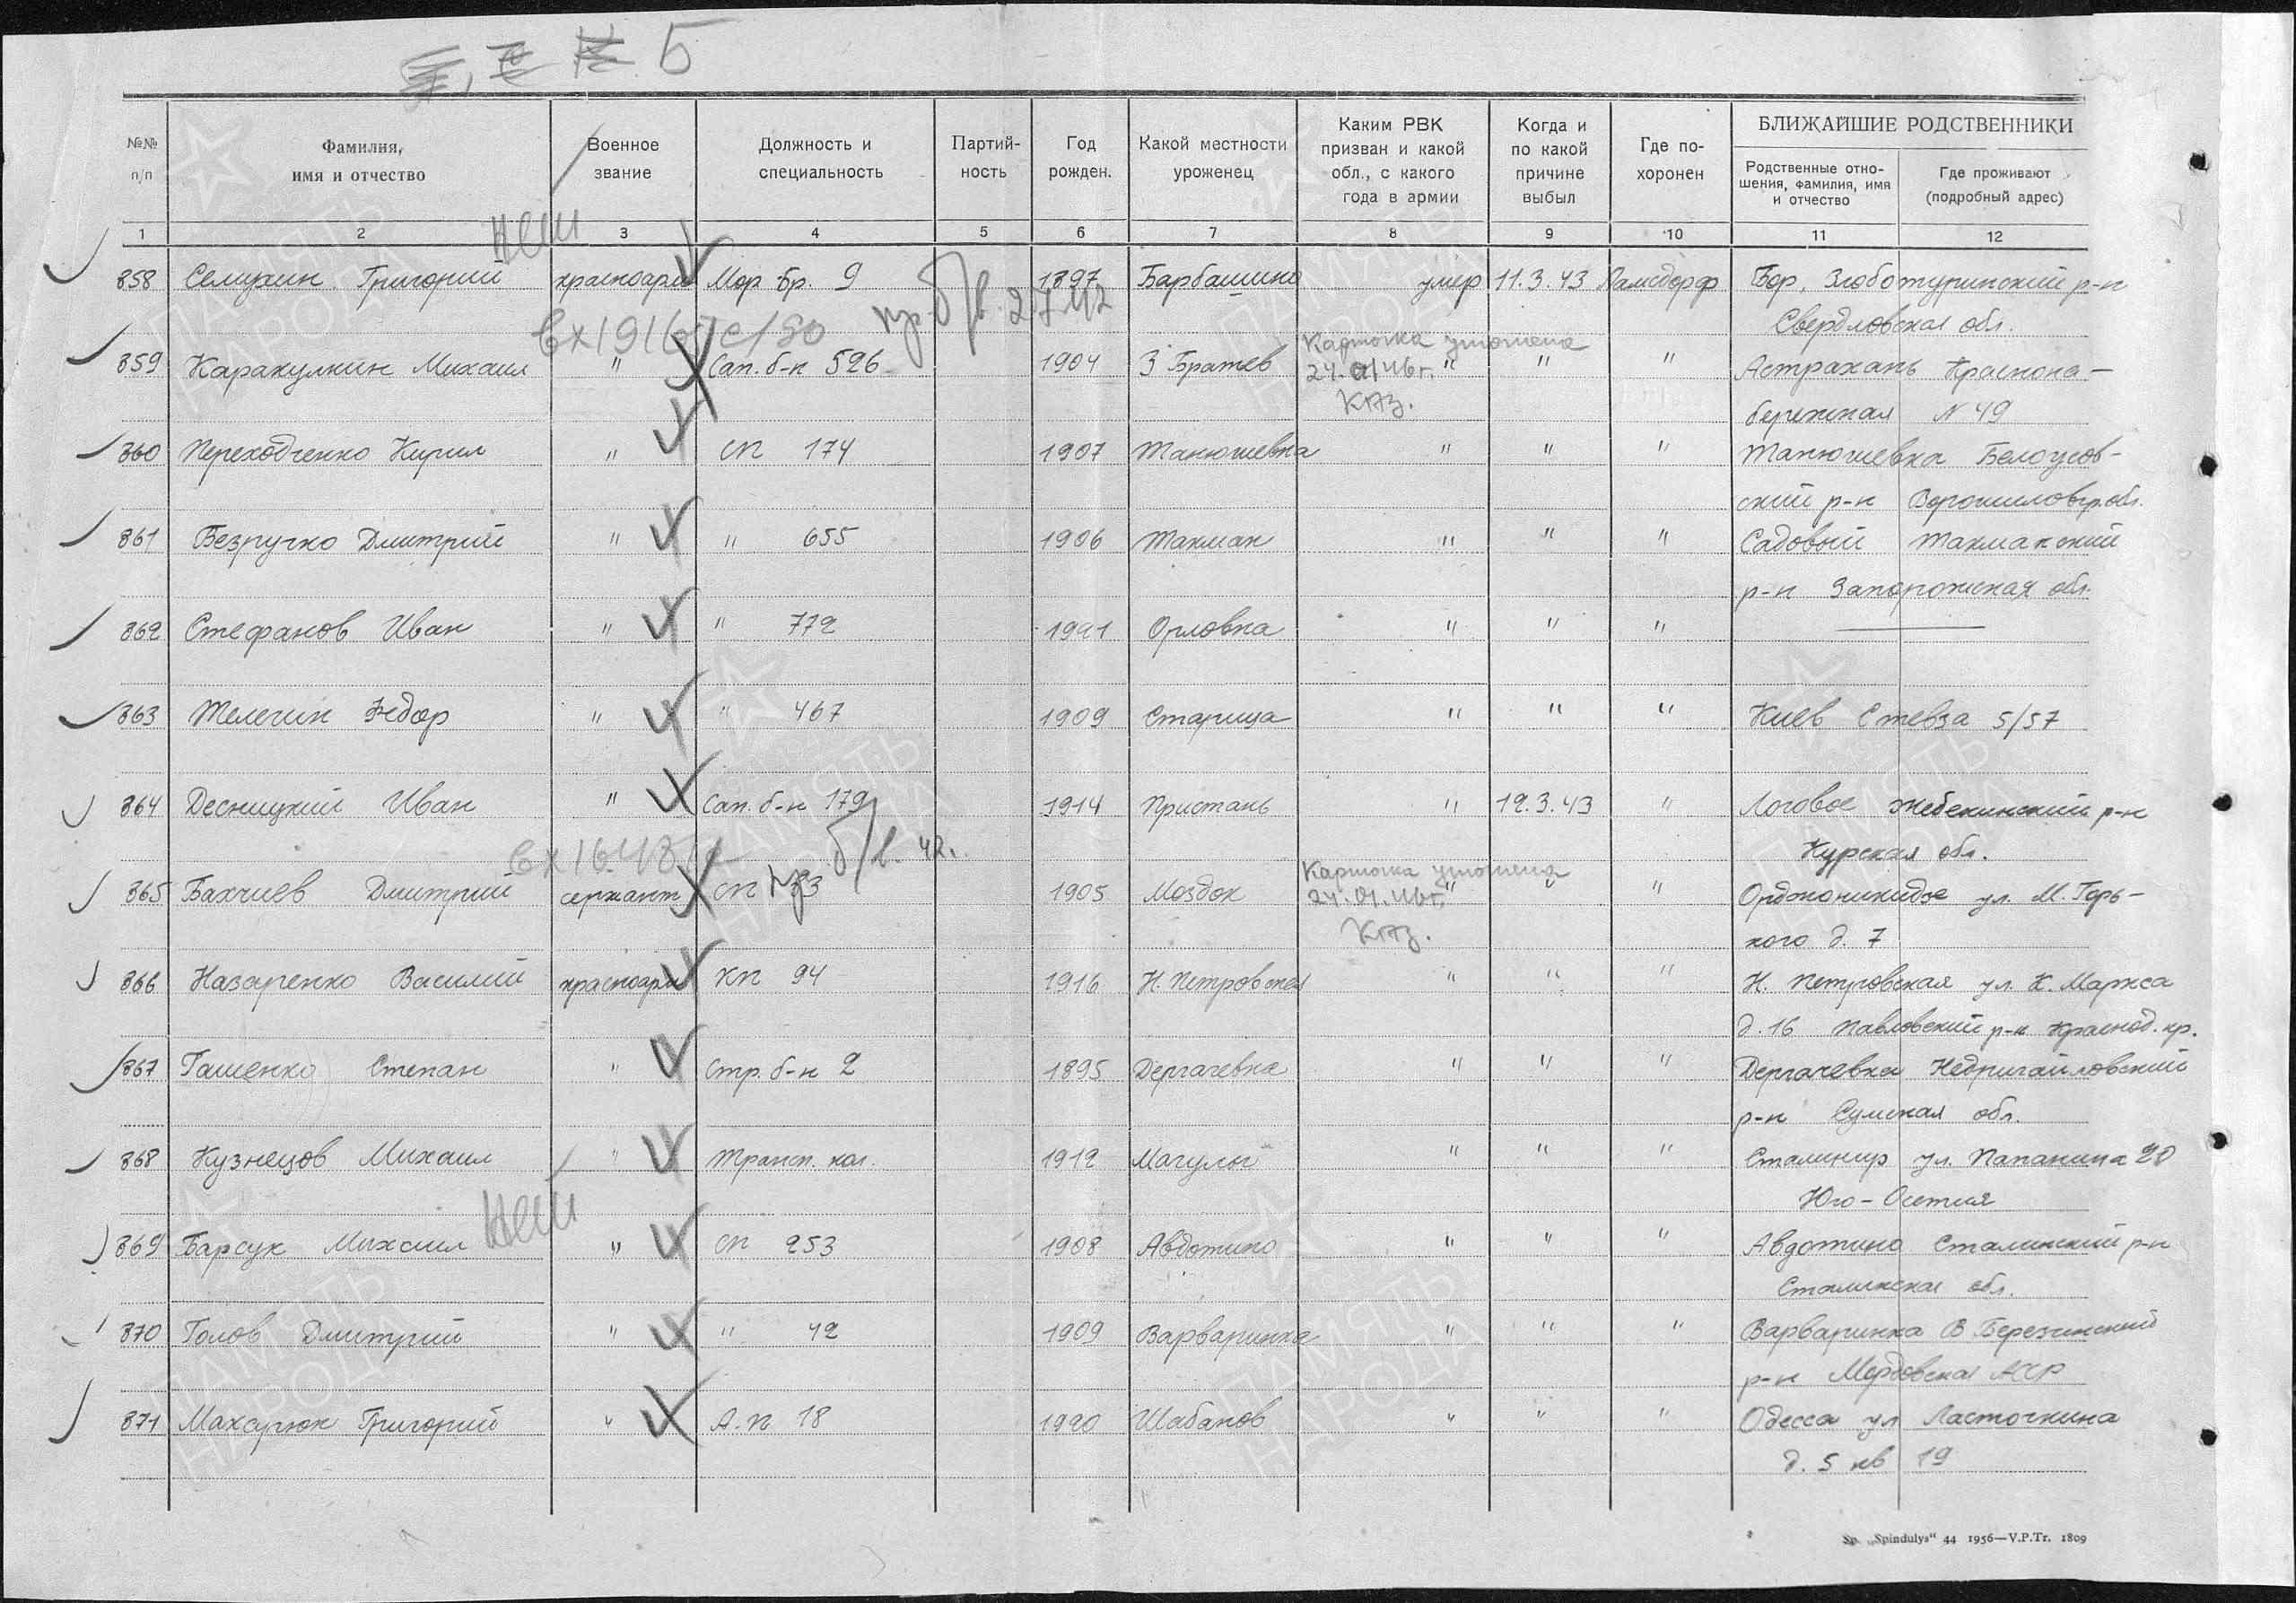 Б
№№ п/п
Фамилия, имя и отчество
Военное звание
Должность и специальность
Партий- ность
Год рожден.
Какой местности уроженец
Каким РВК призван и какой обл., с какого года в армии
Когда и по какой причине выбыл
Где по- хоронен
БЛИЖАЙШИЕ РОДСТВЕННИКИ
Родственные отно- шения, фамилия, имя и отчество
Где проживают (подробный адрес)
1 2 3 4 5 6 7 8 9 10 11 12
нет
858 Семухин Григорий красноарм Мор. Бр. 9 1897 Барбашино умер 11.3.43 Ламсдорф Бор, Слоботуринский р-н
Свердловская обл.
вх 1916 с/80 пр. б/в. 27 42
Карточка уточнена
859 Каракулькин Михаил " Сап. б-н 526 1904 3 Братев 24.01.46г. " " " Астрахань Краснона-
КАз.
бережная N 49
860 Переходченко Кирил " СП 174 1907 Танюшевка " " " Танюшевка Белоусов-
ский р-н Ворошиловгр. обл.
861 Безручко Дмитрий " " 655 1906 Такмак " " " Садовый Такмакский
р-н Запорожская обл.
862 Стефанов Иван " " 772 1921 Орловка " " "
863 Телегин Федор " " 467 1909 Старица " " " Киев Стевза 5/57
864 Десницкий Иван " Сап. б-н 179 1914 Пристань " 12.3.43 " Логовое Жебекинский р-н
Курская обл.
вх 16487 пр б/в. 42.
Карточка уточнена
865 Бахчиев Дмитрий сержант СП 33 1905 Моздок 24.01.46г. " " " Орджоникидзе ул. М. Горь-
КАз.
кого д. 7
866 Назаренко Василий красноарм КП 94 1916 Н. Петровская " " " Н. Петровская ул. К. Маркса
д. 16 Павловский р-н Краснод. кр.
867 Гашенко Степан " Стр. б-н 2 1895 Дергачевка " " " Дергачевка Недригайловский
р-н Сумская обл.
868 Кузнецов Михаил " Трансп. кол. 1912 Магулы " " " Сталинир ул. Папанина 20
Юго-Осетия
нет
869 Барсук Михаил " СП 253 1908 Авдотино " " " Авдотино Сталинский р-н
Сталинская обл.
870 Голов Дмитрий " " 42 1909 Варваринка " " " Варваринка В Березинский
р-н Мордовская АССР
871 Махсурюк Григорий " А. п 18 1920 Шабанов " " " Одесса ул Ласточкина
д. 5 кв 19
Sp. „Spindulys“ 44 1956—V.P.Tr. 1809
ПАМЯТЬ НАРОДА